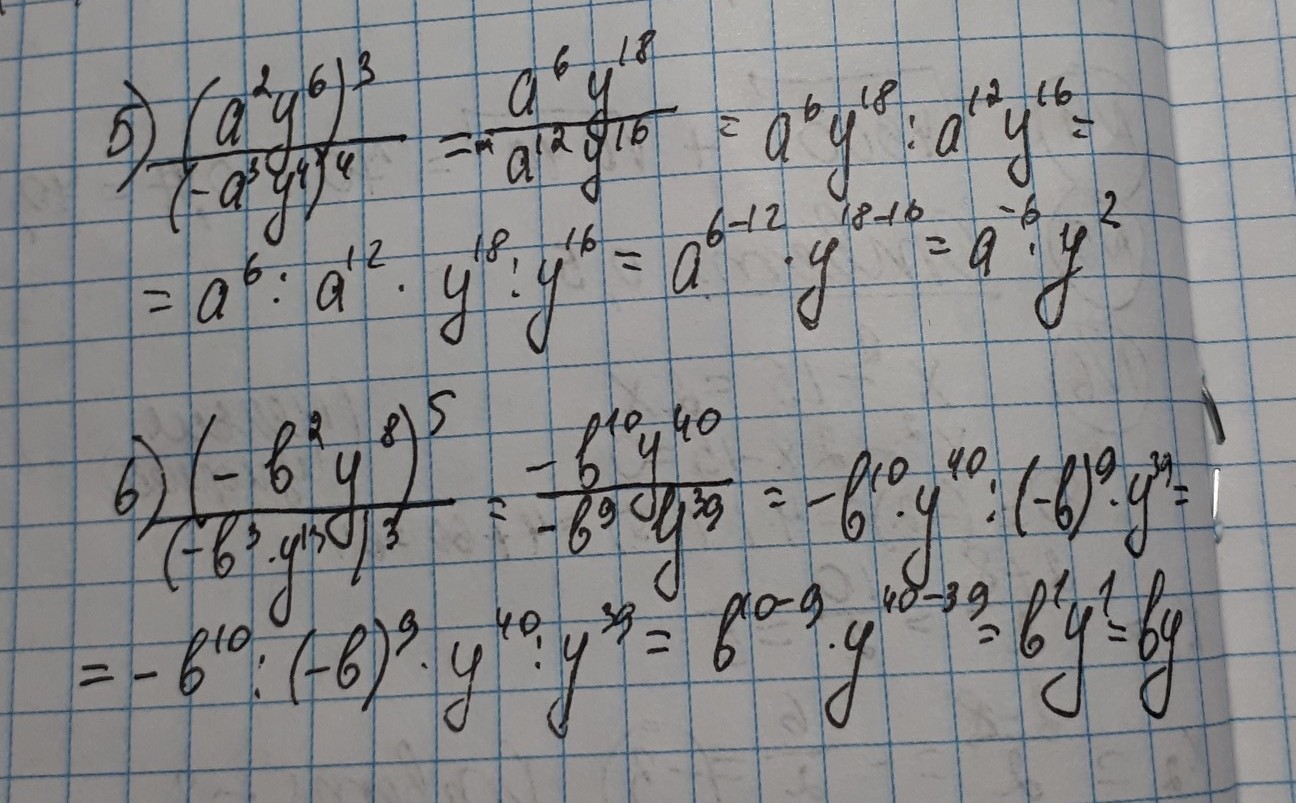 5) (a²y⁶)³ / (-a³y⁴)⁴ = a⁶y¹⁸ / a¹²y¹⁶ = a⁶y¹⁸ : a¹²y¹⁶ =
= a⁶ : a¹² · y¹⁸ : y¹⁶ = a⁶⁻¹² · y¹⁸⁻¹⁶ = a⁻⁶ : y²
6) (-в²y⁸)⁵ / (-в³·y¹³)³ = -в¹⁰y⁴⁰ / -в⁹y³⁹ = -в¹⁰·y⁴⁰ : (-в)⁹·y³⁹ =
= -в¹⁰ : (-в)⁹ · y⁴⁰ : y³⁹ = в¹⁰⁻⁹ · y⁴⁰⁻³⁹ = в¹y¹ = вy